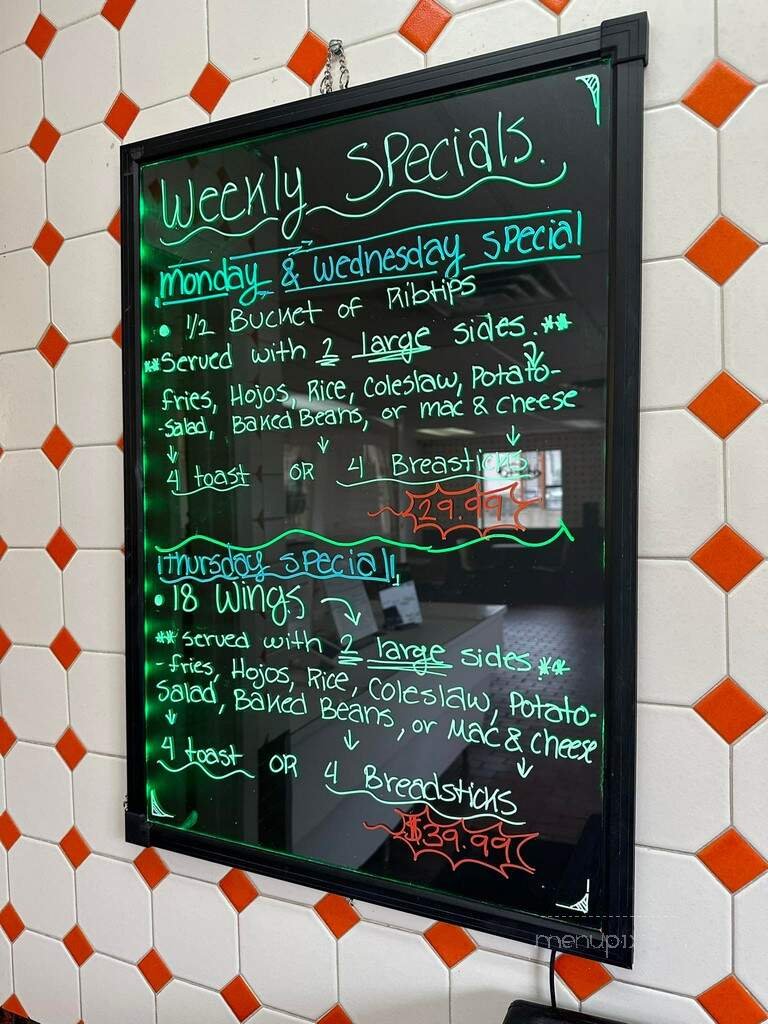 Weekly Specials.
Monday & Wednesday Special
• 1/2 Bucket of Ribtips
**Served with 2 large sides.**
fries, Hojos, Rice, Coleslaw, Potato-
-salad, Baked Beans, or mac & cheese
4 toast OR 4 Breasticks
29.99
Thursday Special
• 18 Wings
** served with 2 large sides **
- fries, Hojos, Rice, Coleslaw, Potato-
salad, Baked Beans, or Mac & cheese
4 toast OR 4 Breadsticks
$39.99
menupix